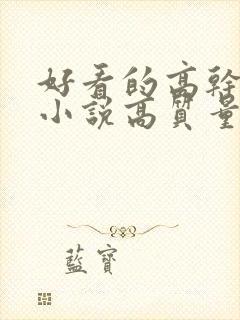 好看的高幹
小説高質量
藍寶